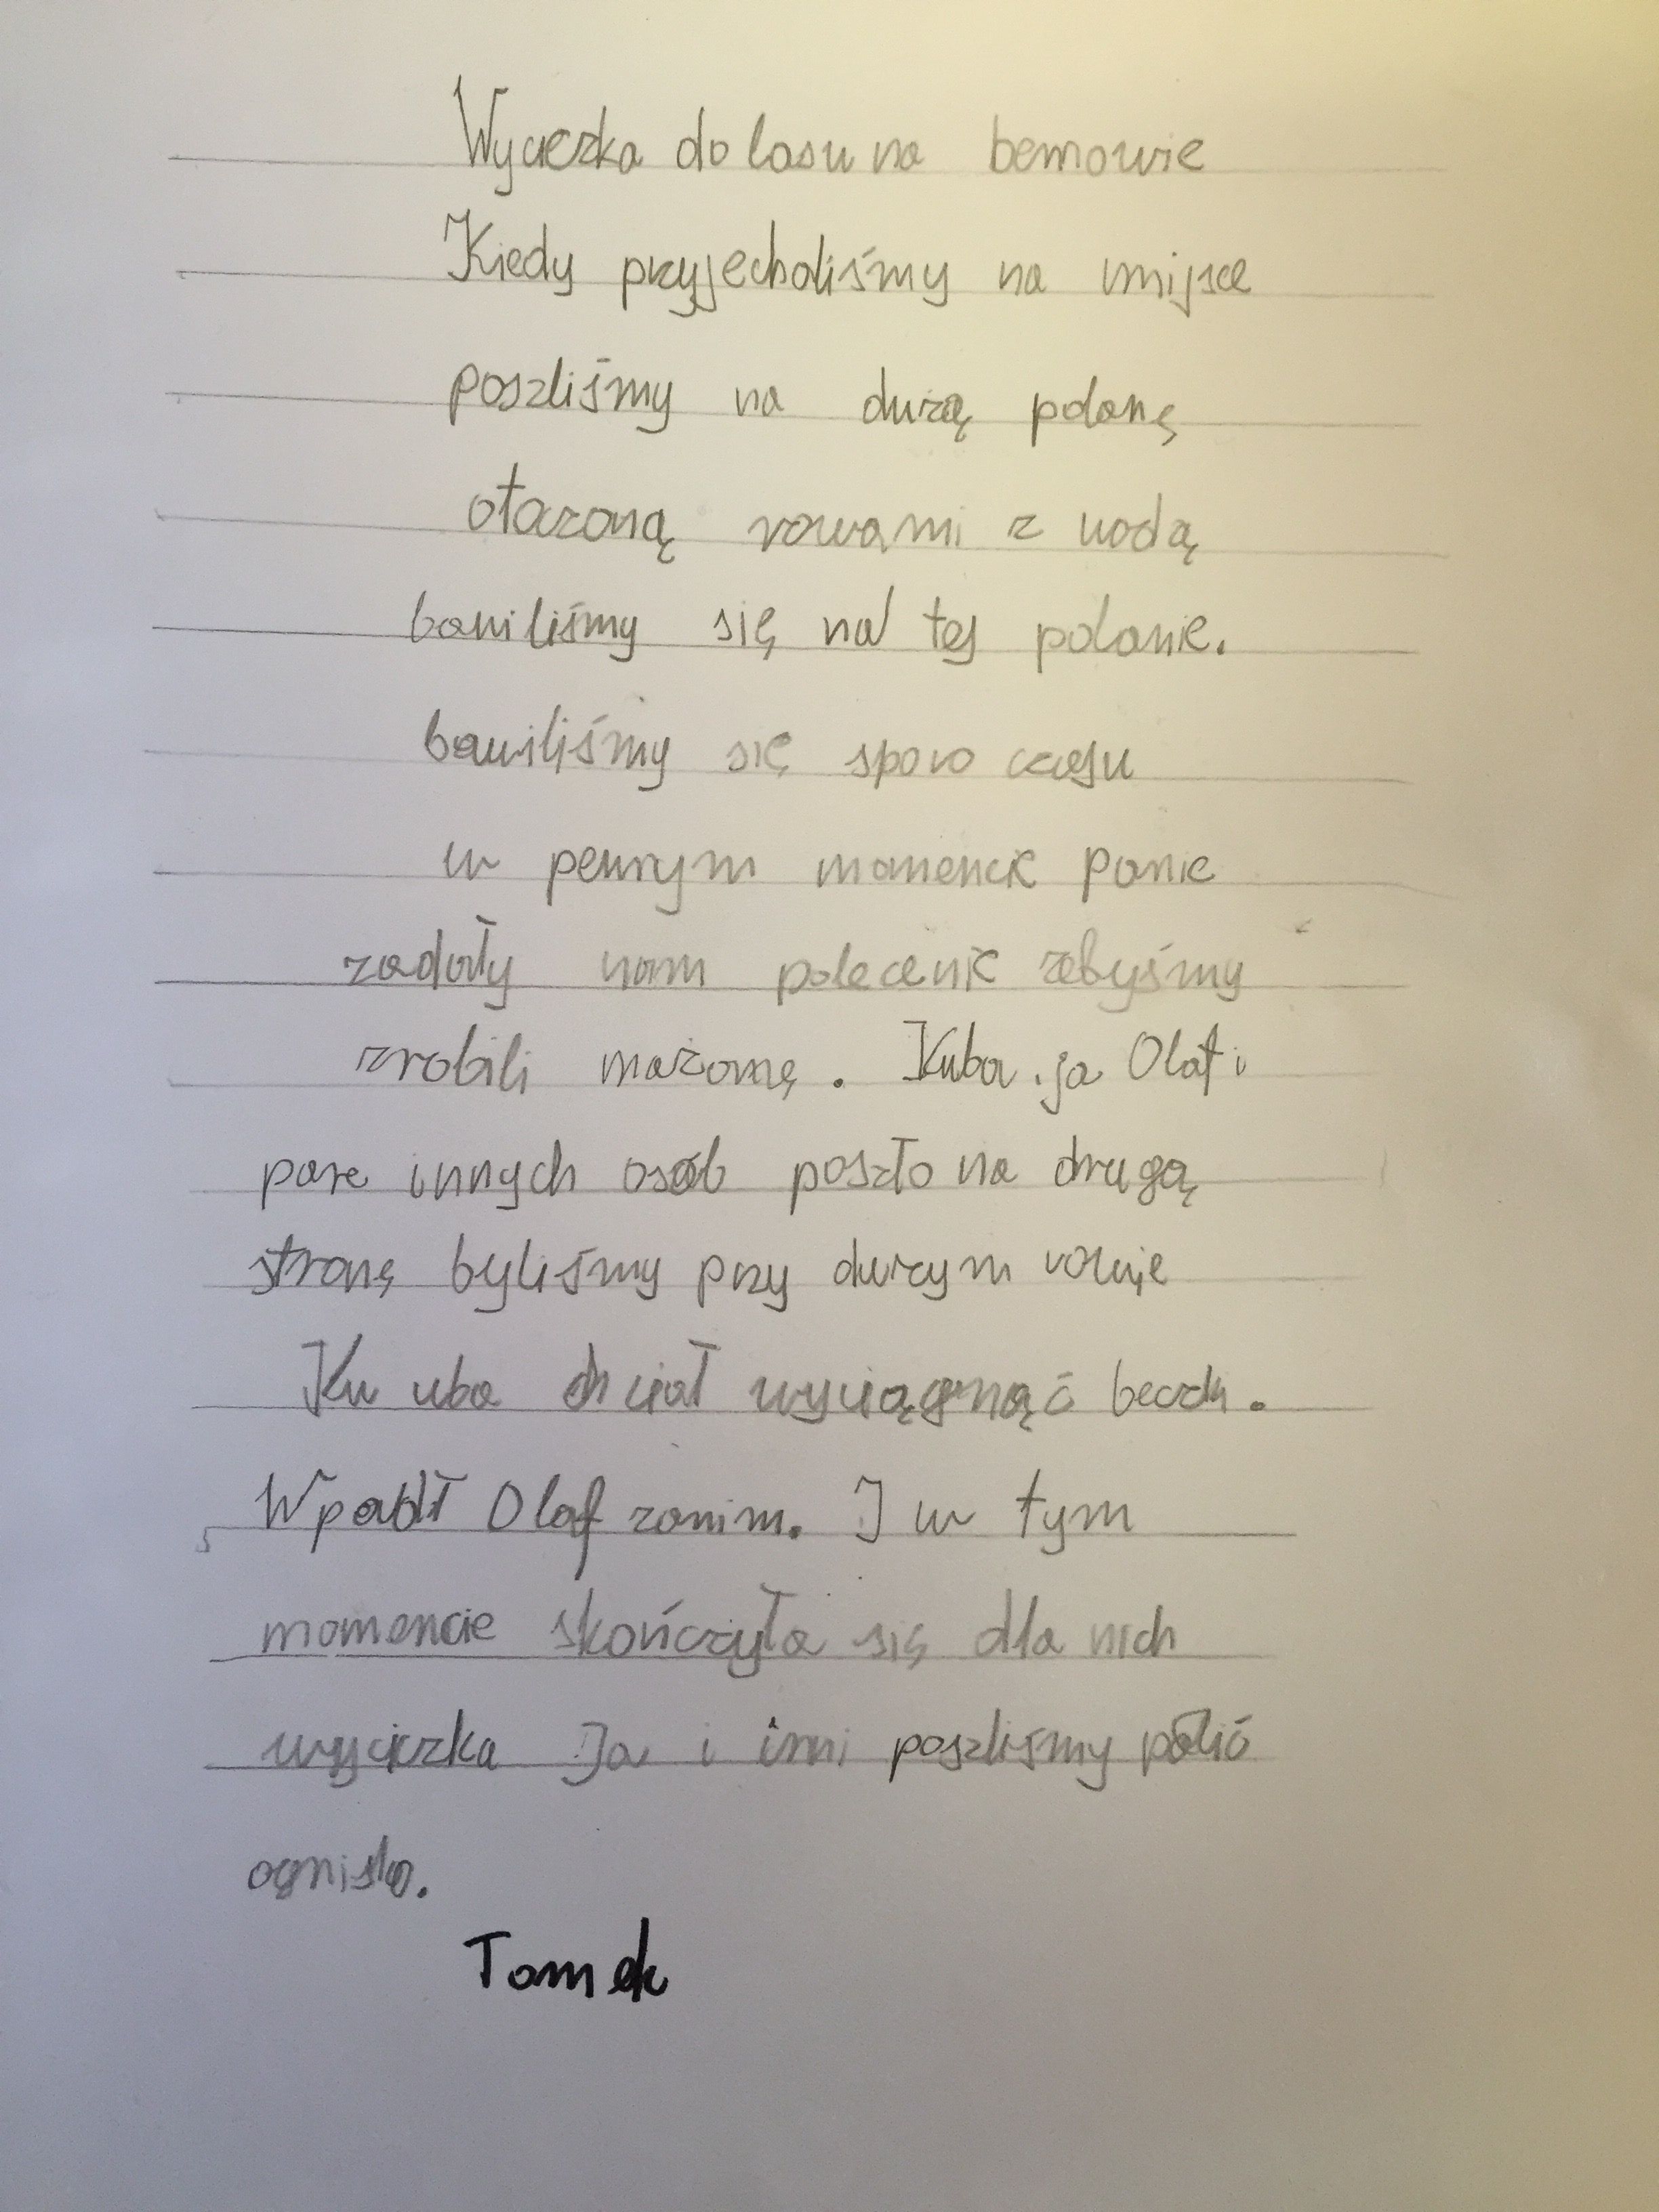 Wycieczka do lasu na bemowie
Kiedy przyjechaliśmy na mijsce
poszliśmy na dużą polanę
otaczoną rowami z wodą
bawiliśmy się na tej polanie.
bawiliśmy się sporo czasu
w pewnym momencie Panie
zadały nam polecenie żebyśmy
zrobili marzannę. Kuba, ja Olaf i
pare innych osób poszło na drugą
stronę byliśmy przy dużym rowie
Ku uba chciał wyciągnąć
Wpadł Olaf zanim. I w tym
momencie skończyła się dla nich
wycieczka Ja i inni poszliśmy palić
ognisko.
Tomek